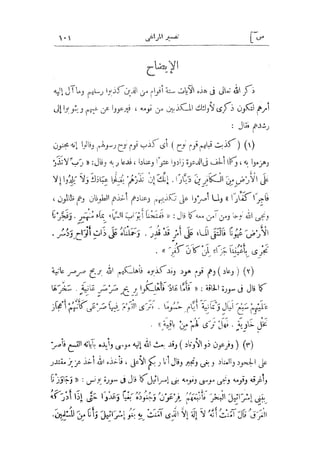 ص]
تفسير المراغى
١٠١
الإيضاح
ذكر الله تعالى فى هذه الآيات ستة أقوام من الذين كذبوا رسلهم وما آل إليه
أمرهم لتكون ذكرى لأولئك المكذبين من قومه ، فيرعووا عن غيهم ويثوبوا إلى
رشدهم فقال :
(١) ( كذبت قبلهم قوم نوح ) أى كذب قوم نوح رسولهم وقالوا إنه مجنون
وهزءوا به ، وكلما ألحف فى الدعوة زادوا عتوا وعنادا ، فدعا ربه وقال : « رَبِّ لاَ تَذَرْ
عَلَى الْأَرْضِ مِنَ الْكَافِرِينَ دَيَّارًا . إِنَّكَ إِنْ تَذَرْهُمْ يُضِلُّوا عِبَادَكَ وَلاَ يَلِدُوا إِلاَّ
فَاجِرًا كَفَّارًا » ولما أصروا على تكذيبهم وعنادهم أخذهم الطوفان وهم ظالمون ،
ونجى الله نوحا ومن آمن معه كما قال : « فَفَتَحْنَا أَبْوَابَ السَّمَاءِ بِمَاءٍ مُنْهَمِرٍ . وَفَجَّرْنَا
الْأَرْضَ عُيُونًا فَالْتَقَى الْمَاءُ عَلَى أَمْرٍ قَدْ قُدِرَ . وَحَمَلْنَاهُ عَلَى ذَاتِ أَلْوَاحٍ وَدُسُرٍ .
تَجْرِى بِأَعْيُنِنَا جَزَاءً لِمَنْ كَانَ كُفِرَ » .
(٢) ( وعاد ) وهم قوم هود وقد كذبوه فأهلكهم الله بريح صرصر عاتية
كما قال فى سورة الحاقة : « فَأَمَّا عَادٌ فَأُهْلِكُوا بِرِيحٍ صَرْصَرٍ عَاتِيَةٍ . سَخَّرَهَا
عَلَيْهِمْ سَبْعَ لَيَالٍ وَثَمَانِيَةَ أَيَّامٍ حُسُومًا . فَتَرَى الْقَوْمَ فِيهَا صَرْعَى كَأَنَّهُمْ أَعْجَازُ
نَخْلٍ خَاوِيَةٍ . فَهَلْ تَرَى لَهُمْ مِنْ بَاقِيَةٍ » .
(٣) ( وفرعون ذو الأوتاد ) وقد بعث الله إليه موسى وأيده بآياته التسع فأصر
على الجحود والعناد وبغى وتجبر وقال أنا ربكم الأعلى ، فأخذه الله أخذ عزيز مقتدر
وأغرقه وقومه ونجى موسى وقومه بنى إسرائيل كما قال فى سورة يونس : « وَجَاوَزْنَا
بِبَنِى إِسْرَائِيلَ الْبَحْرَ فَأَتْبَعَهُمْ فِرْعَوْنُ وَجُنُودُهُ بَغْيًا وَعَدْوًا حَتَّى إِذَا أَدْرَكَهُ
الْغَرَقُ قَالَ آمَنْتُ أَنَّهُ لاَ إِلَهَ إِلاَّ الَّذِى آمَنَتْ بِهِ بَنُو إِسْرَائِيلَ وَأَنَا مِنَ الْمُسْلِمِينَ.